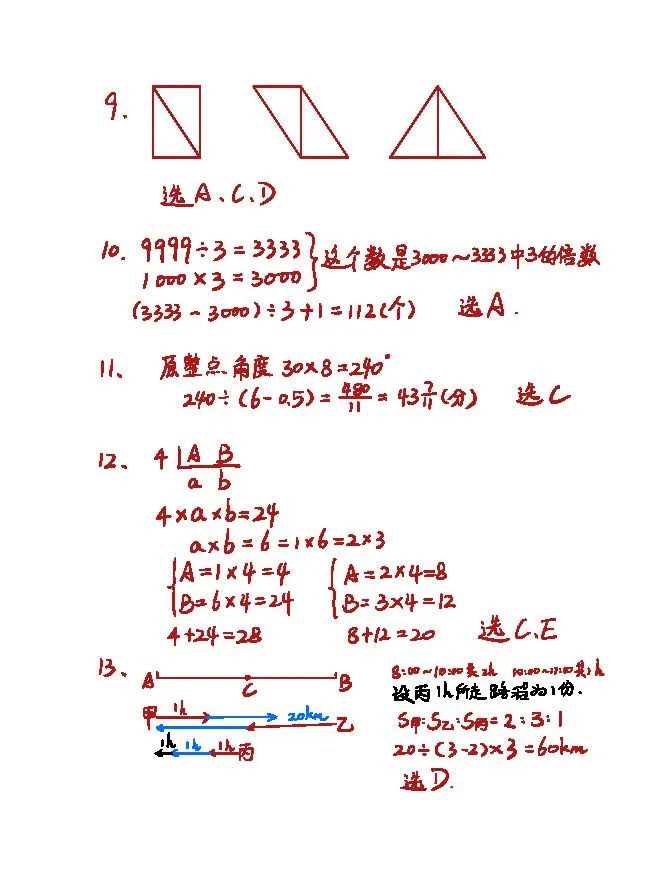 9.
选A、C、D
10. 9999÷3=3333
1000×3=3000
这个数是3000~3333中3的倍数
(3333-3000)÷3+1=112(个) 选A.
11、 原整点角度30×8=240°
240÷(6-0.5)=480/11=43 7/11(分) 选C
12、 4 A B
a b
4×a×b=24
a×b=6=1×6=2×3
A=1×4=4 A=2×4=8
B=6×4=24 B=3×4=12
4+24=28 8+12=20 选C、E
13、 A C B
甲 1h 20km 乙
1h 1h 1h 丙
8:00~10:00共2h
设丙1h所走路程为1份.
S甲:S乙:S丙=2:3:1
20÷(3-2)×3=60km
选D.